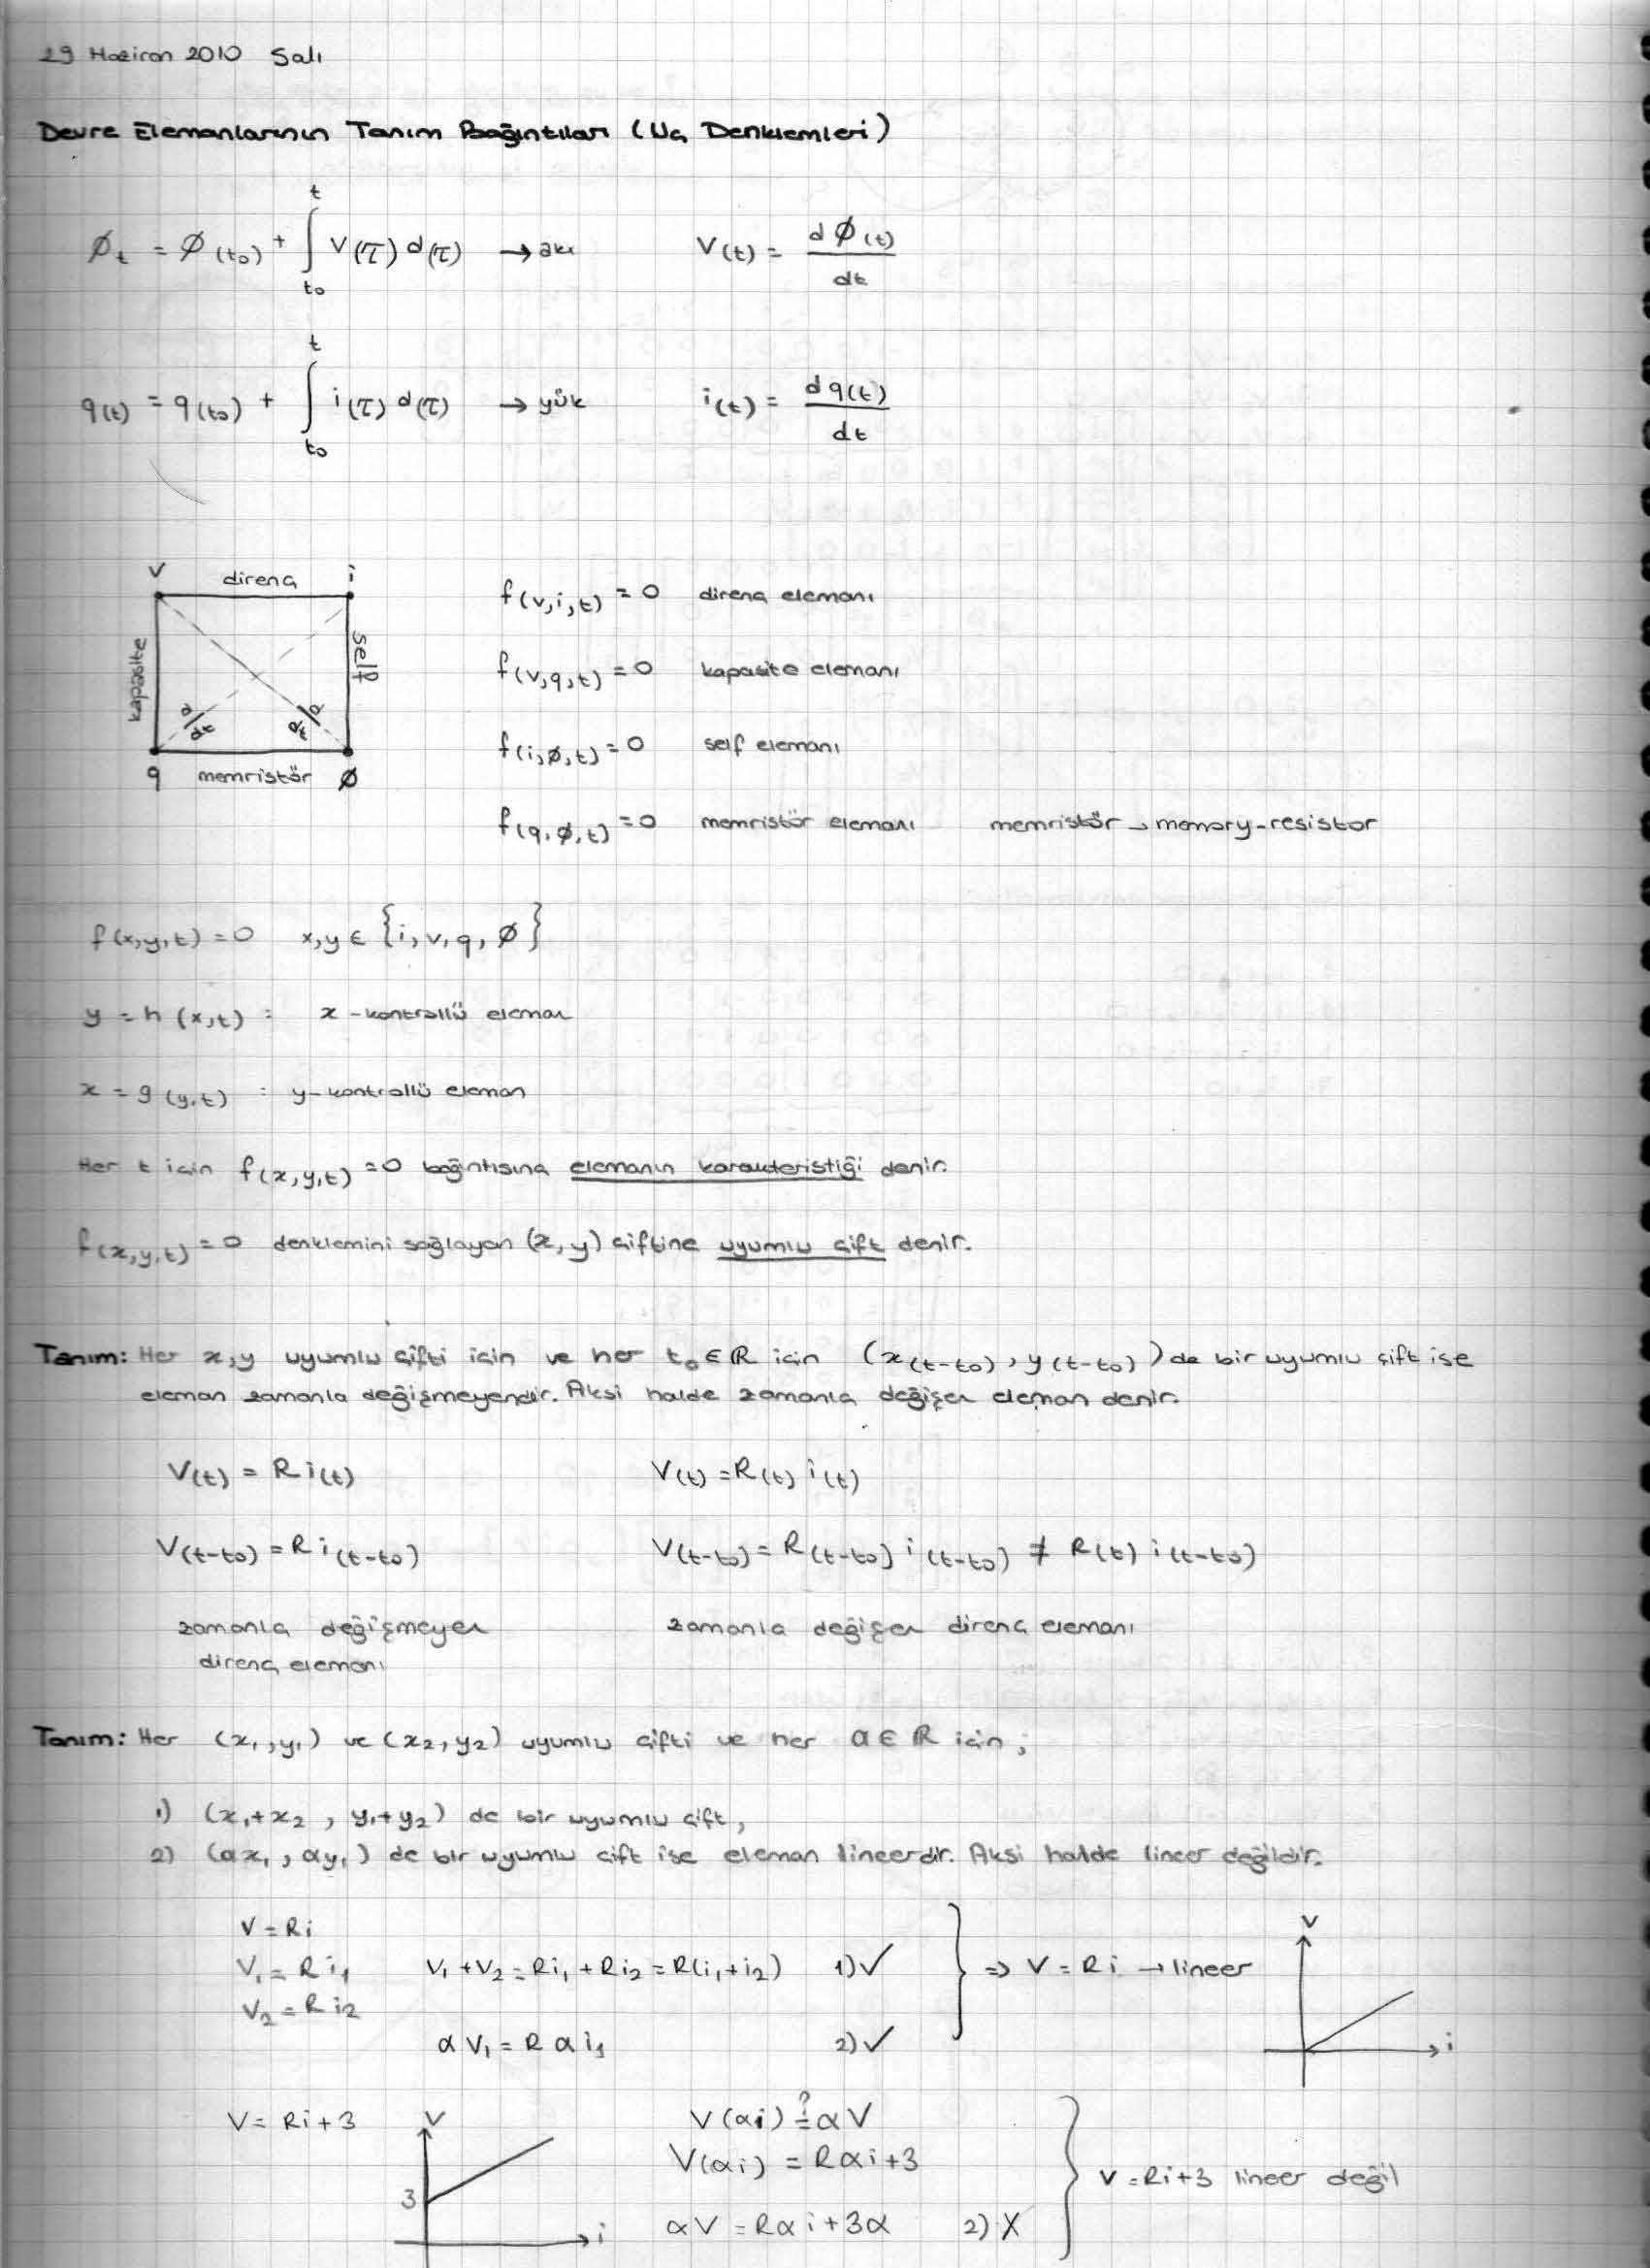 29 Haziran 2010 Salı
Devre Elemanlarının Tanım Bağıntıları (Uç Denklemleri)
t
∅t = ∅(t0) + ∫ V(τ) d(τ) → akı V(t) = d∅(t)/dt
t0
t
q(t) = q(t0) + ∫ i(τ) d(τ) → yük i(t) = dq(t)/dt
t0
V direnç i
kapasite
self
d/dt
d/dt
q memristör ∅
f(v,i,t) = 0 direnç elemanı
f(v,q,t) = 0 kapasite elemanı
f(i,∅,t) = 0 self elemanı
f(q,∅,t) = 0 memristör elemanı memristör → memory-resistor
f(x,y,t) = 0 x,y ∈ {i, v, q, ∅}
y = h(x,t) : x-kontrollü eleman
x = g(y,t) : y-kontrollü eleman
Her t için f(x,y,t) = 0 bağıntısına elemanın karakteristiği denir.
f(x,y,t) = 0 denklemini sağlayan (x,y) çiftine uyumlu çift denir.
Tanım: Her x,y uyumlu çifti için ve her t0 ∈ ℝ için (x(t-t0), y(t-t0)) de bir uyumlu çift ise
eleman zamanla değişmeyendir. Aksi halde zamanla değişen eleman denir.
V(t) = R i(t) V(t) = R(t) i(t)
V(t-t0) = R i(t-t0) V(t-t0) = R(t-t0) i(t-t0) ≠ R(t) i(t-t0)
zamanla değişmeyen zamanla değişen direnç elemanı
direnç elemanı
Tanım: Her (x1,y1) ve (x2,y2) uyumlu çifti ve her α ∈ ℝ için;
1) (x1+x2, y1+y2) de bir uyumlu çift,
2) (αx1, αy1) de bir uyumlu çift ise eleman lineerdir. Aksi halde lineer değildir.
V = Ri
V1 = R i1 V1 + V2 = Ri1 + Ri2 = R(i1+i2) 1) ✓ } ⇒ V = Ri → lineer
V2 = R i2
α V1 = R α i1 2) ✓
V
i
V = Ri + 3
V
3
i
V(αi) ?= αV
V(αi) = Rαi+3
αV = Rαi + 3α 2) X
} V = Ri+3 lineer değil